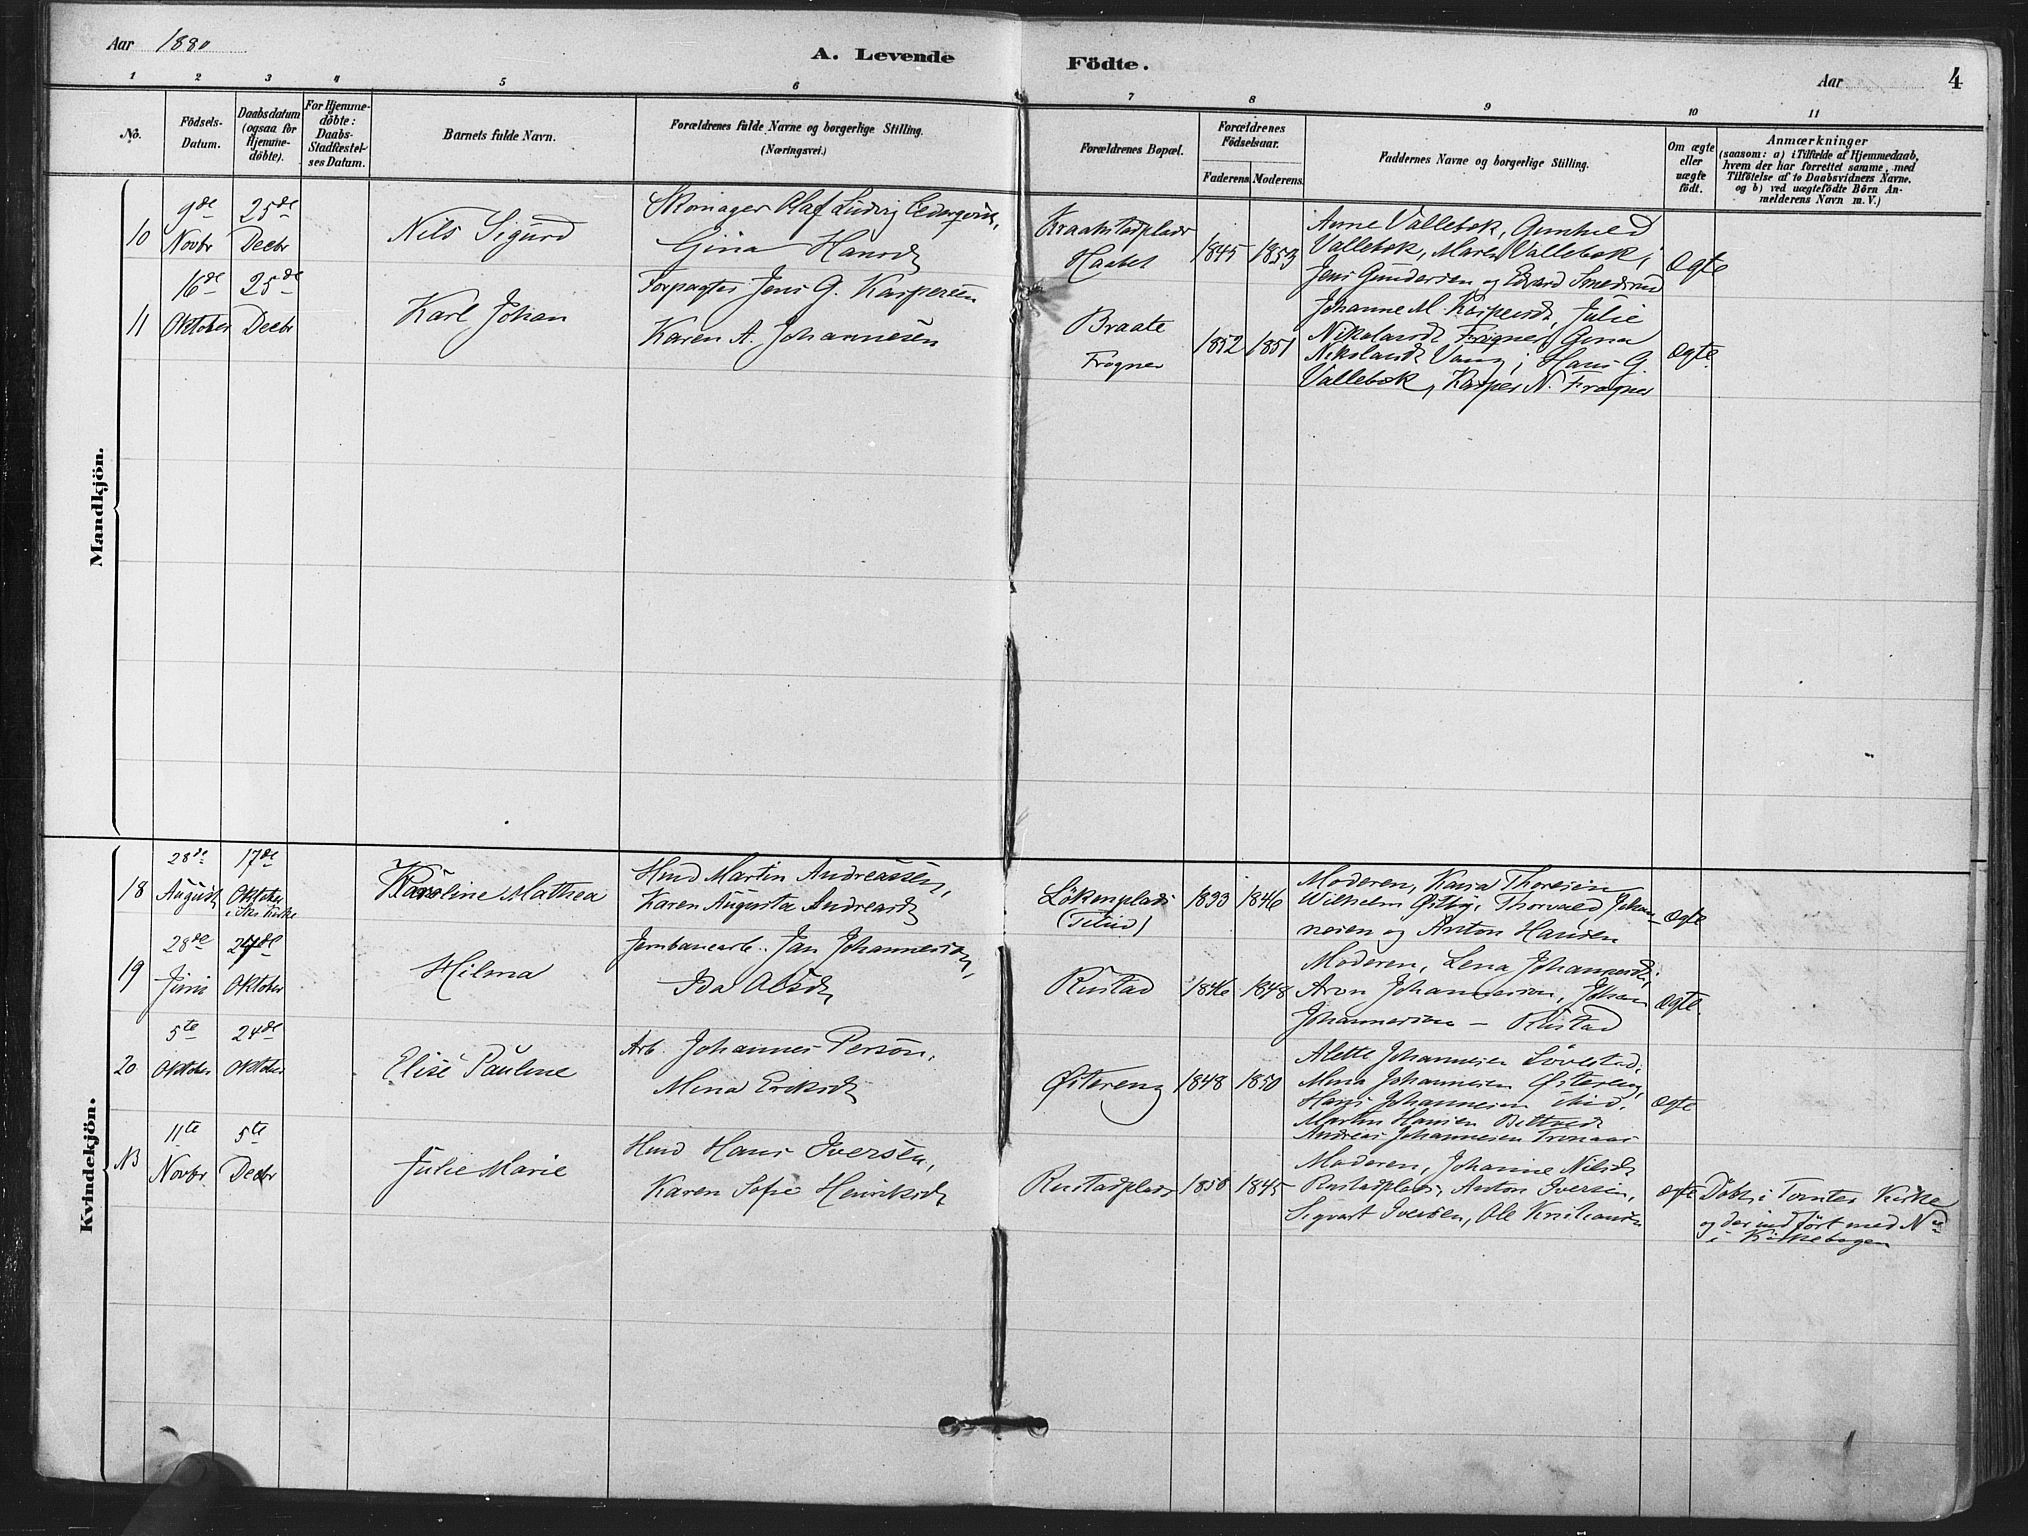 Aar 1880
A. Levende Födte.
Aar
4
1 2 3 4 5 6 7 8 9 10 11
No.
Födsels-
Datum.
Daabsdatum
(ogsaa for
Hjemme-
döbte).
For Hjemme-
döbte:
Daabs-
Stadfæstel-
ses Datum.
Barnets fulde Navn.
Forældrenes fulde Navne og borgerlige Stilling.
(Næringsvei.)
Forældrenes Bopæl.
Forældrenes
Födselsaar.
Faderens Moderens
Faddernes Navne og borgerlige Stilling.
Om ægte
eller
uægte
födt.
Anmærkninger
(saasom: a) i Tilfælde af Hjemmedaab,
hvem der har forrettet samme, med
Tilföielse af to Daabsvidners Navne,
og b) ved uægtefödte Börn An-
melderens Navn m.V.)
Mandkjön.
10
9de
Novbr
25de
Decbr
Nils Sigurd
Skomager Olaf Ludvig Cederqvist,
Gina Hansdt
Kraakstadplads
Haabet
1845 1853
Anne Vallebæk, Gunhild
Vallebæk, Maren Vallebæk,
Jens Gundersen og Edvard Smedsrud
Ægte
11
16de
Oktober
25de
Decbr
Karl Johan
Forpagter Jens G. Kaspersen
Karen A. Johannesen
Braate
Frogner
1852 1851
Johanne M. Kaspersdt, Julie
Nikolaisdt Frogner, Gina
Nikolaisdt Vang, Hans G.
Vallebæk, Kasper N. Frogner
Ægte.
Kvindekjön.
18
28de
August
17de
Oktober
i Aas Kirke
Karoline Mathea
Hmd Martin Andreassen,
Karen Augusta Andreasdt
Løkenplads
1833 1846
Moderen, Karia Thoresen
Wilhelm Østby, Thorvald Johan-
nesen og Anton Hansen
Ægte
19
28de
Juni
24de
Oktober
Hilma
Jernbanearb. Jan Johannesson,
Ida Olsdt
Rustad
1846 1848
Moderen, Lena Johannesdt,
Aron Johannesson, Johan
Johannesson – Rustad
Ægte.
20
5te
Oktober
24de
Oktober
Elise Pauline
Arb. Johannes Person,
Mina Eriksdt
Østereng
1848 1850
Alette Johannesen Løvestad,
Mina Johannesen Østereng,
Hans Johannesen ibid.
Martin Hansen
Andreas Johannesen Tronaas
Ægte
NB
11te
Novbr.
5te
Decbr
Julie Marie
Hmd Hans Iversen,
Karen Sofie Henriksdt
Rustadplads
1850 1845
Moderen, Johanne Nilsdt
Rustadplads, Anton Iversen,
Sigvart Iversen, Ole Kristiansen
Ægte
Døbt i Tomter Kirke
og der indført med No
i Kirkebogen